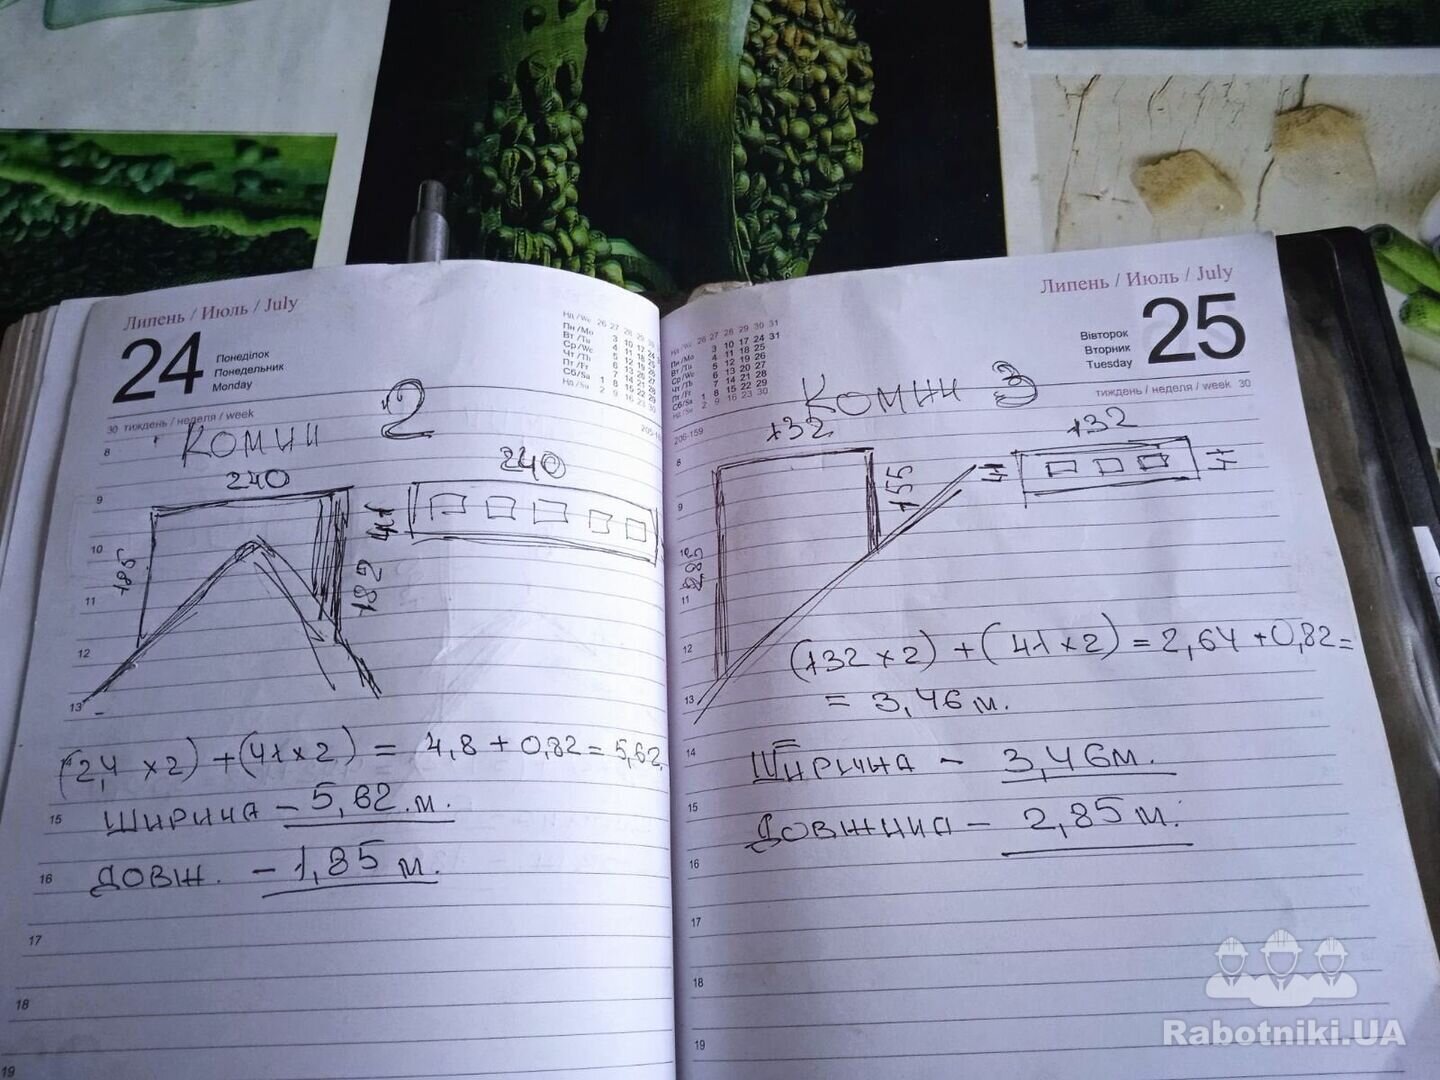 Липень / Июль / July
24
Понеділок
Понедельник
Monday
Нд/We 26 27 28 29 30
Пн/Mo 3 10 17 24
Вт/Tu 4 11 18 25
Ср/We 5 12 19 26
Чт/Th 6 13 20 27
Пт/Fr 7 14 21 28
Сб/Sa 1 8 15 22 29
Нд/Su 2 9 16 23 30
30 тиждень / неделя / week
205-16
8
Комин 2
240
240
9
41
10
185
182
11
12
13
(2,4 x 2) + (41 x 2) = 4,8 + 0,82 = 5,62
15
Ширина - 5,62 м.
16
довж. - 1,85 м.
17
18
19
Липень / Июль / July
25
Вівторок
Вторник
Tuesday
Нд/We 26 27 28 29 30 31
Пн/Mo 3 10 17 24 31
Вт/Tu 4 11 18 25
Ср/We 5 12 19 26
Чт/Th 6 13 20 27
Пт/Fr 7 14 21 28
Сб/Sa 1 8 15 22 29
Нд/Su 2 9 16 23 30
тиждень / неделя / week 30
206-159
Комин 3
132
132
8
155
41
41
9
10
285
11
12
(132 x 2) + (41 x 2) = 2,64 + 0,82 =
13
= 3,46 м.
14
Ширина - 3,46 м.
15
Довжина - 2,85 м.
16
17
18
19
Rabotniki.UA